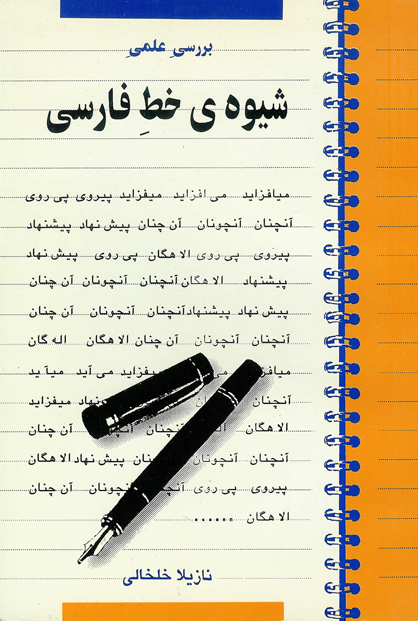 بررسیِ علمیِ
شیوه ی خطِ فارسی
میافزاید می افزاید میفزاید پیروی پی روی
آنچنان آنچونان آن چنان پیش نهاد پیشنهاد
پیروی پی روی الاهگان پی روی پیش نهاد
پیشنهاد الاهگان آنچنان آنچونان آن چنان
پیش نهاد پیشنهاد آنچنان آنچونان آن چنان
آنچنان آنچونان آن چنان الاهگان اله گان
میفزاید می آید میآید
آنچنان میفزاید
الاهگان آن چنان
آنچنان آنچونان پیش نهاد الاهگان
پیروی پی روی آنچونان آن چنان
الاهگان ......
نازیلا خلخالی